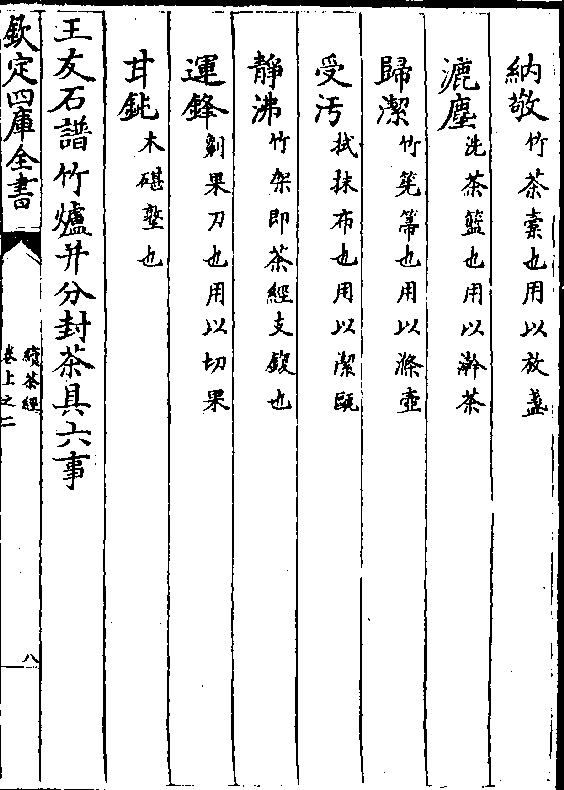 納敬竹茶橐也用以放盞
漉塵洗茶籃也用以澣茶
歸潔竹筅箒也用以滌壺
受汚拭抹布也用以潔甌
靜沸竹架即茶經支鍑也
運鋒劖果刀也用以切果
甘鈍木碪墊也
王友石譜竹爐并分封茶具六事
欽定四庫全書
續茶經
卷上之二
八